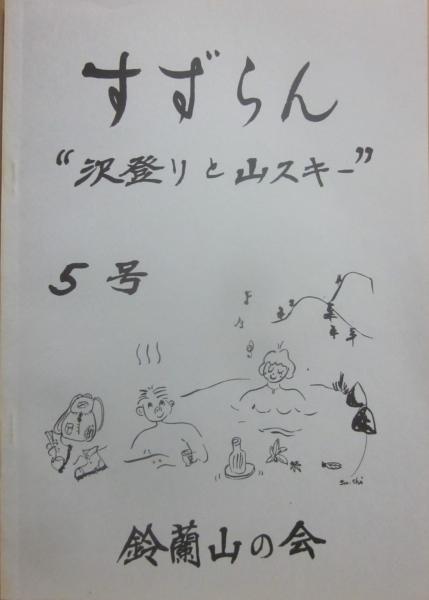 すずらん
“沢登りと山スキー”
5号
鈴蘭山の会